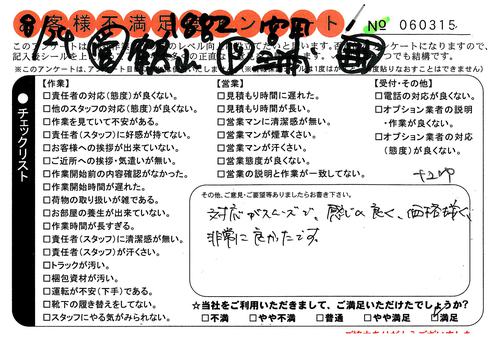 お客様不満足度アンケート
No 060315
8/24
チェックリスト
【作業】
□責任者の対応(態度)が良くない。
□他のスタッフの対応(態度)が良くない。
□作業を見ていて不安がある。
□責任者(スタッフ)に好感が持てない。
□お客様への挨拶が出来ていない。
□ご近所への挨拶・気遣いが無い。
□作業開始前の内容確認がなかった。
□作業開始時間が遅れた。
□荷物の取り扱いが雑である。
□お部屋の養生が出来ていない。
□作業時間が長すぎる。
□責任者(スタッフ)に清潔感が無い。
□責任者(スタッフ)が汗くさい。
□トラックが汚い。
□梱包資材が汚い。
□運転が不安(下手)である。
□靴下の履き替えをしてない。
□スタッフにやる気がみられない。
【営業】
□見積もり時間に遅れた。
□見積もり時間が長い。
□営業マンに清潔感が無い。
□営業マンが煙草くさい。
□営業マンが汗くさい。
□営業態度が良くない。
□営業の説明と作業が一致してない。
【受付・その他】
□電話の対応が良くない。
□オプション業者の説明
・作業が良くない。
□オプション業者の対応
(態度)が良くない。
その他、ご意見・ご要望等ありましたらお書き下さい。
対応がスムーズで、感じの良く、価格も安く
非常に良かったです。
☆当社をご利用いただきまして、ご満足いただけたでしょうか?
□不満 □やや不満 □普通 □やや満足 □満足